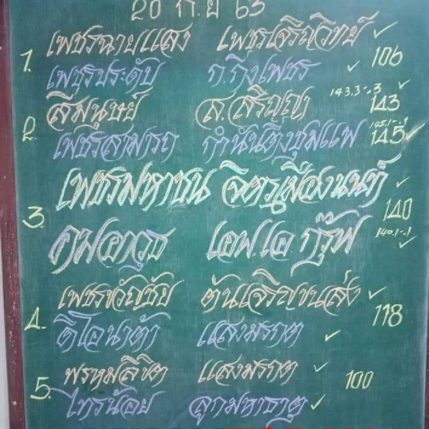 20 ก.ย 63
1. เพชรฉายแสง เพชรเจริญวิทย์ ✓
เพชรประดับ ก.กิ่งเพชร ✓ 106
สีมนุษย์ ส.สริญญา 143
2. เพชรสามารถ กำนันติ่งชุมแพ 145 ✓
3. เพชรมหาชน จิตรเมืองนนท์ ✓
140
คมอาวุธ เอฟเอกรุ๊ป
4. เพชรขวัญชัย ต้นเจริญขนส่ง ✓
118
ดีโอน่าต้า แสงมรกต ✓
5. พรหมลิขิต แสงมรกต ✓
100
ไทรน้อย ลูกมหาธาตุ ✓